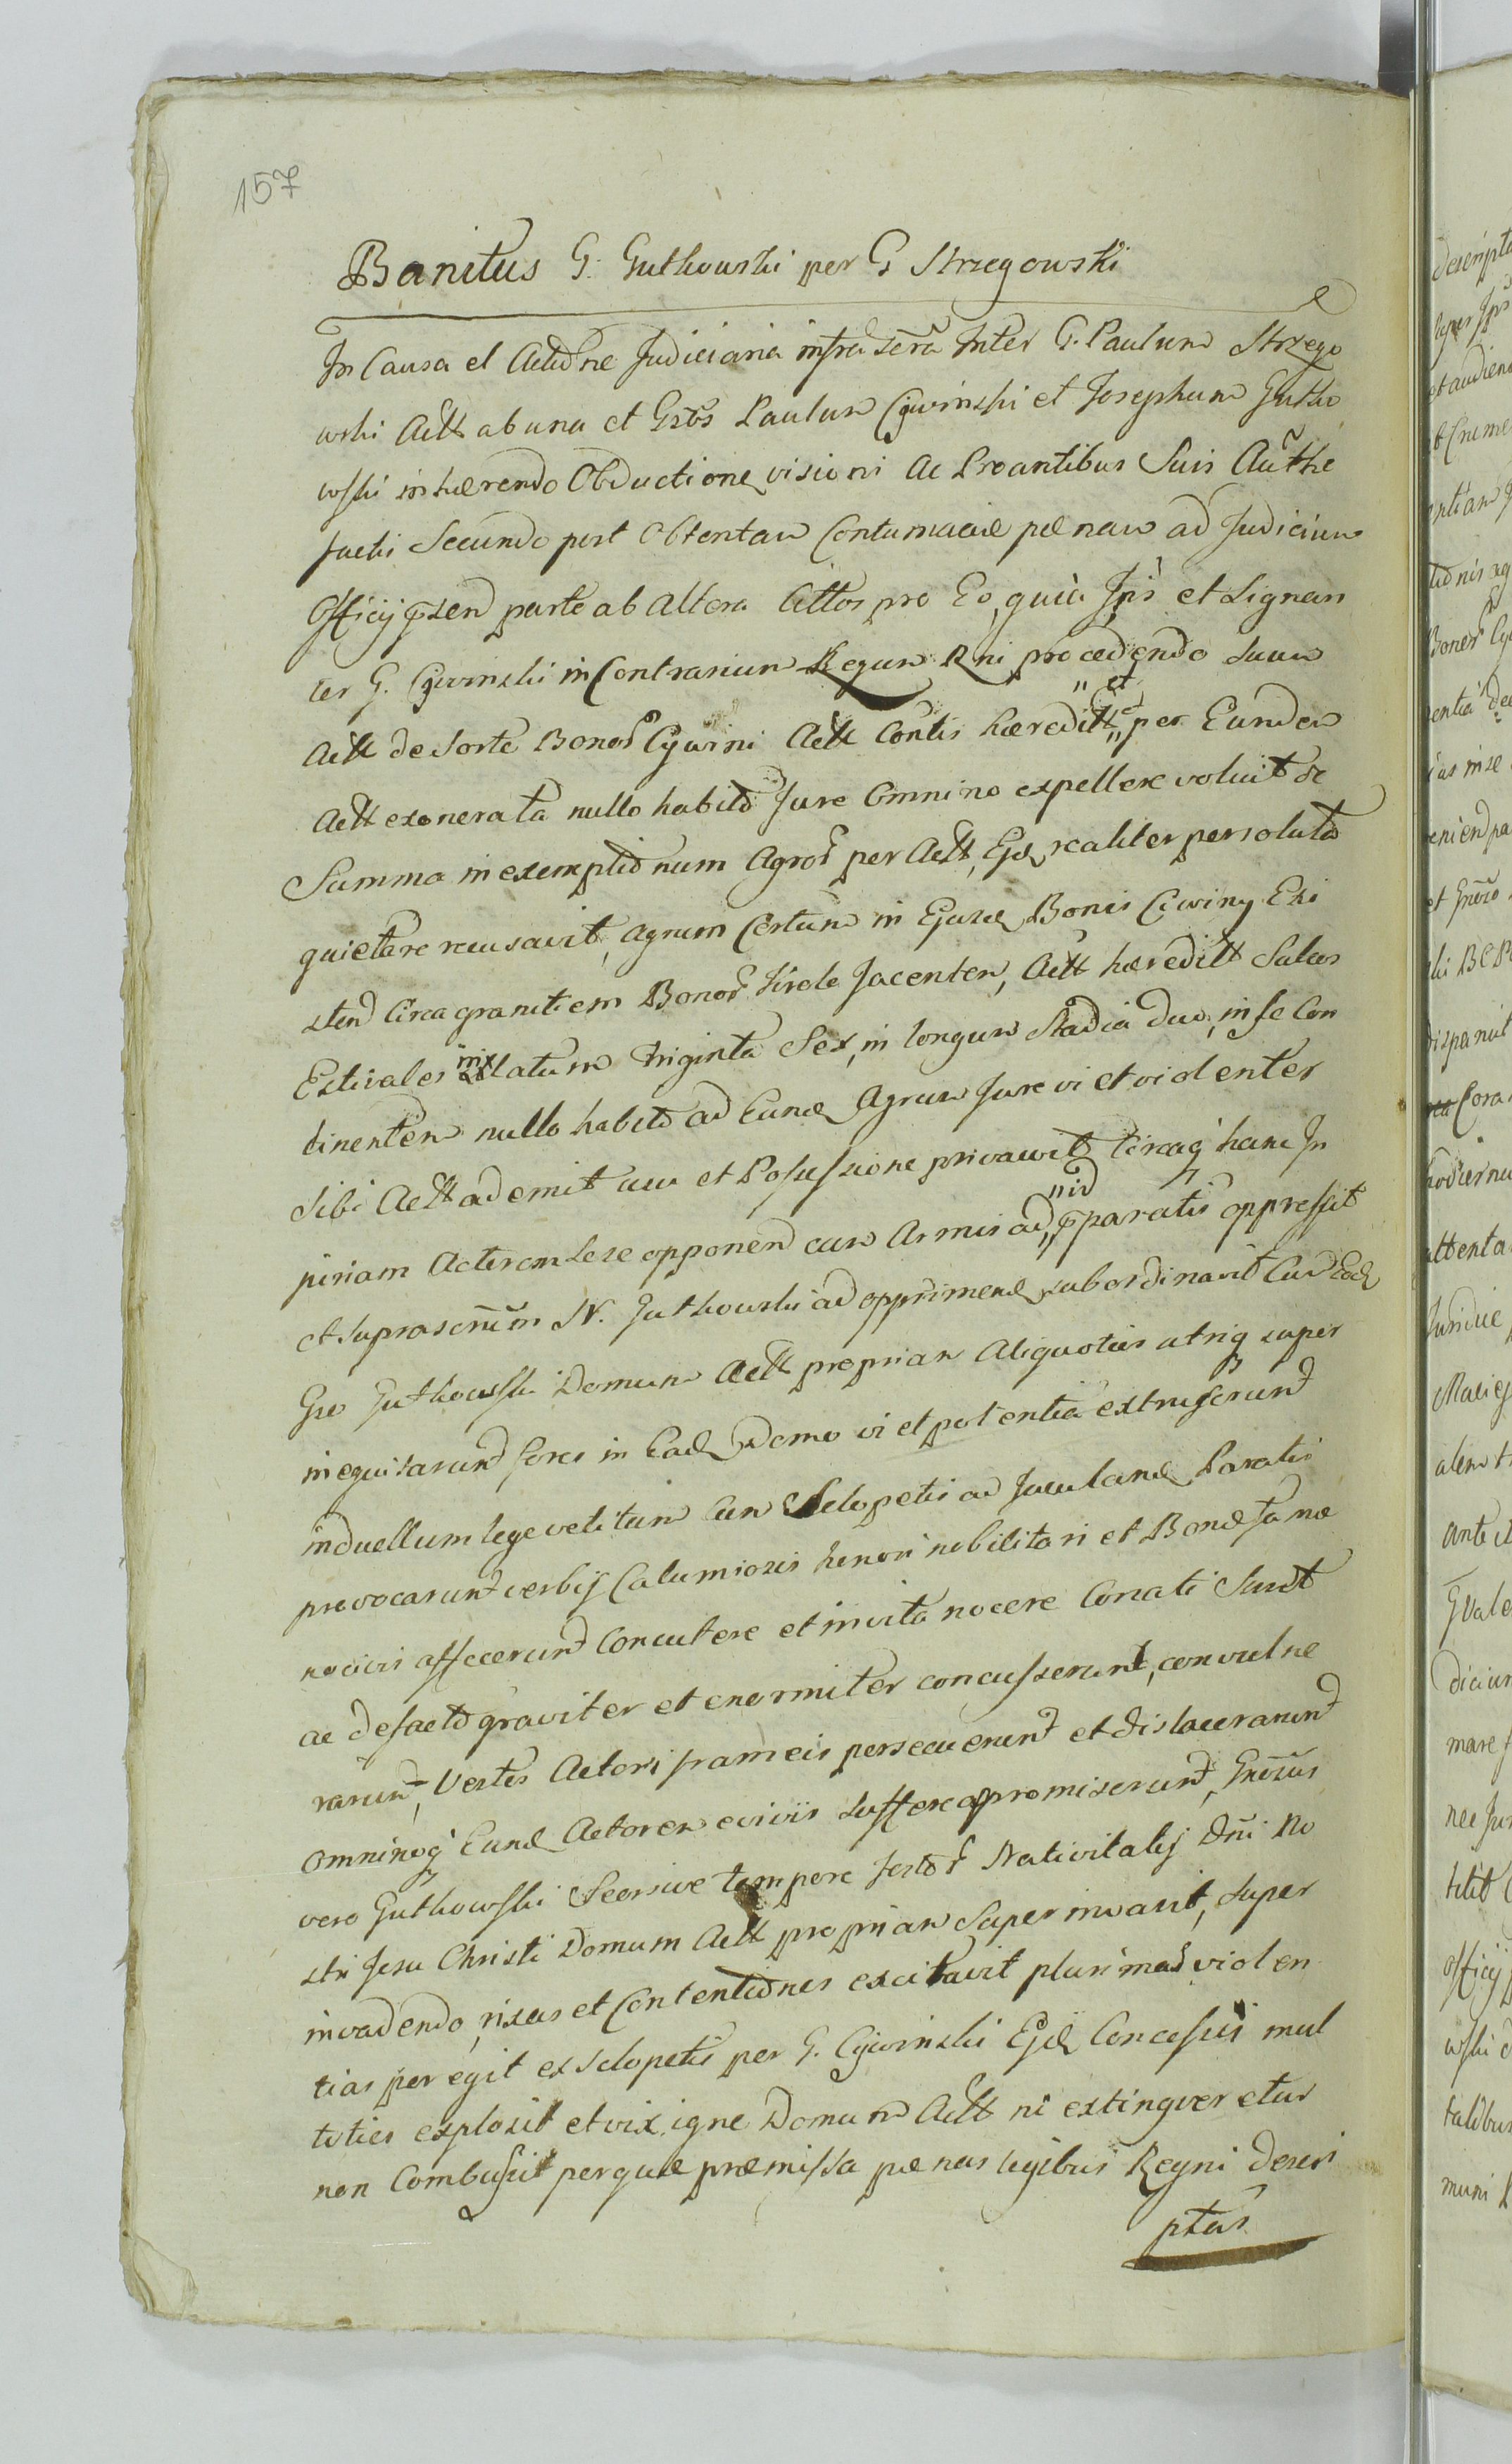 157
Banitus G. Guthowski per G Strzegowski
In Causa et Actione Judiciaria infrascra Inter G. Paulum Strzego
wski Actt ab una et Grbs Paulum Cywinski et Josephum Gutho
wski inhærendo Obductione visioni Ac Proantibus Suis Authe
facti Secundo post Obtentam Contumaciæ pænam ad Judicium
Officij psen parte ab Altera Cittos pro Eo, quia Ips et Signan
ter G. Cywinski in Contrarium Legum Rni procedendo suum
Actt de Sorte Bonor Cywini Actt Contis hæreditt "et" per Eundem
Actt exonerata nullo habito Jure Omnino expellere voluit de
Summa in exemptionum Agror per Actt, Ejd realiter persoluta
quietare recusavit, Agrum Certum in Ejusd Bonis Cywiny Exi
sten Circa granitiem Bonor Jacentem, Actt hæreditt Sulcos
Estivales latum triginta Sex, in longum Stadia duo, in se Con
tinentem nullo habito ad Eund Agrum Jure vi et violenter
Sibi Actt ademit usu et Possessione privavit Circaq hanc In
juriam Actorem Sese opponen cum Armis ad "id pparatis oppressit
et suprascrum N. Guthowski ad opprimend subordinavit Cum Eod
Gso Guthowski Domum Actt propriam Aliquoties utriq super
inequitarunt fores in Ead Domo vi et potentia extruserunt
induellum lege vetitum Cum Sclopetis ad Jaculand Paratis
provocarunt verbis Calumiosis honori nobilitari et Bonæ famæ
nocivis affecerunt Concutere et in vita nocere Conati Sunt
ac defacto graviter et enormiter concusserunt, convulne
rarunt, Vestes Actori frameis persecuerunt et dislacerarunt
omninoq Eund Actorem e vivis sufferre promiserunt, Gnosus
vero Guthowski Seorsive tempore festor Nativitatis Dni No
stri Jesu Christi Domum Actt propriam Superinvasit, super
invadendo, rixas et Contentiones excitavit plurimas violen
tias peregit ex Sclopetis per G. Cywinski Ejd Concessis mul
toties explosit et vix igne Domum Actt ni extingveretur
non Combussit perquæ præmissa pænas legibus Regni descri
ptas